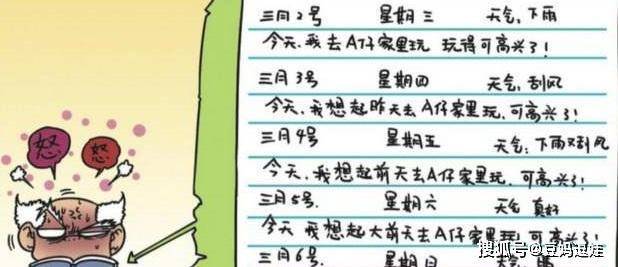 三月2号 星期三 天气:下雨
今天,我去A仔家里玩 玩得可高兴了!
三月3号 星期四 天气:刮风
今天,我想起昨天去A仔家里玩,可高兴了!
三月4号 星期五 天气:下雨又刮风
今天,我想起前天去A仔家里玩,可高兴了!
三月5号 星期六 天气 真好
今天 我想起大前天去A仔家里玩!可高兴了!
三月6号 星期日 天气:晴
怒 怒
搜狐号@豆妈逗娃